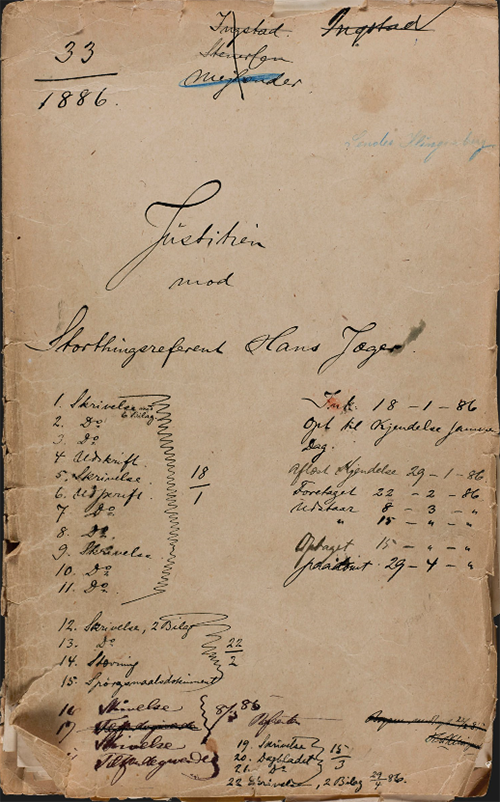 33
1886.
Ingstad.
Ingstad
Justitien
mod
Storthingsreferent Hans Jæger.
1. Skrivelse
6 Bilag
2. Do
3. Do
4 Udskrift.
5. Skrivelse.
6. Udskrift
7 Do
8. Do
9. Skrivelse
10. Do
11. Do
18
1
Ink. 18 – 1 – 86
Opt til Kjendelse samme
Dag.
afsagt Kjendelse 29 – 1 – 86
Foretaget 22 – 2 – 86
Udstaar 8 – 3 – „
„ 15 – „ – „
Optaget 15 – „ – „
29 – 4 – „
12. Skrivelse, 2 Bilag
13. Do
14. Stævning
15. Spørgsmaalsdokument
22
2
16 Skrivelse
17
Skrivelse
8/3 86
19. Skrivelse
20. Dagbladet
21. Do
22 Skrivelse, 2 Bilag
15
3
29/4 86.